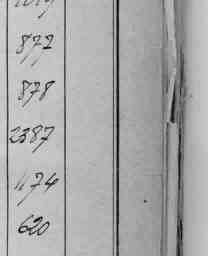 877
878
2387
1174
620